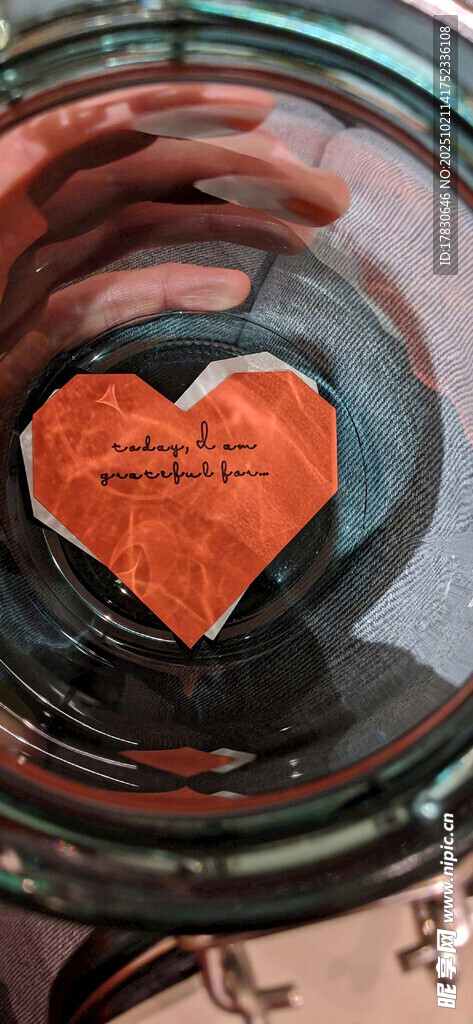 today, I am
grateful for...
ID:17830646 NO:20251021141752336108
昵享网 www.nipic.cn